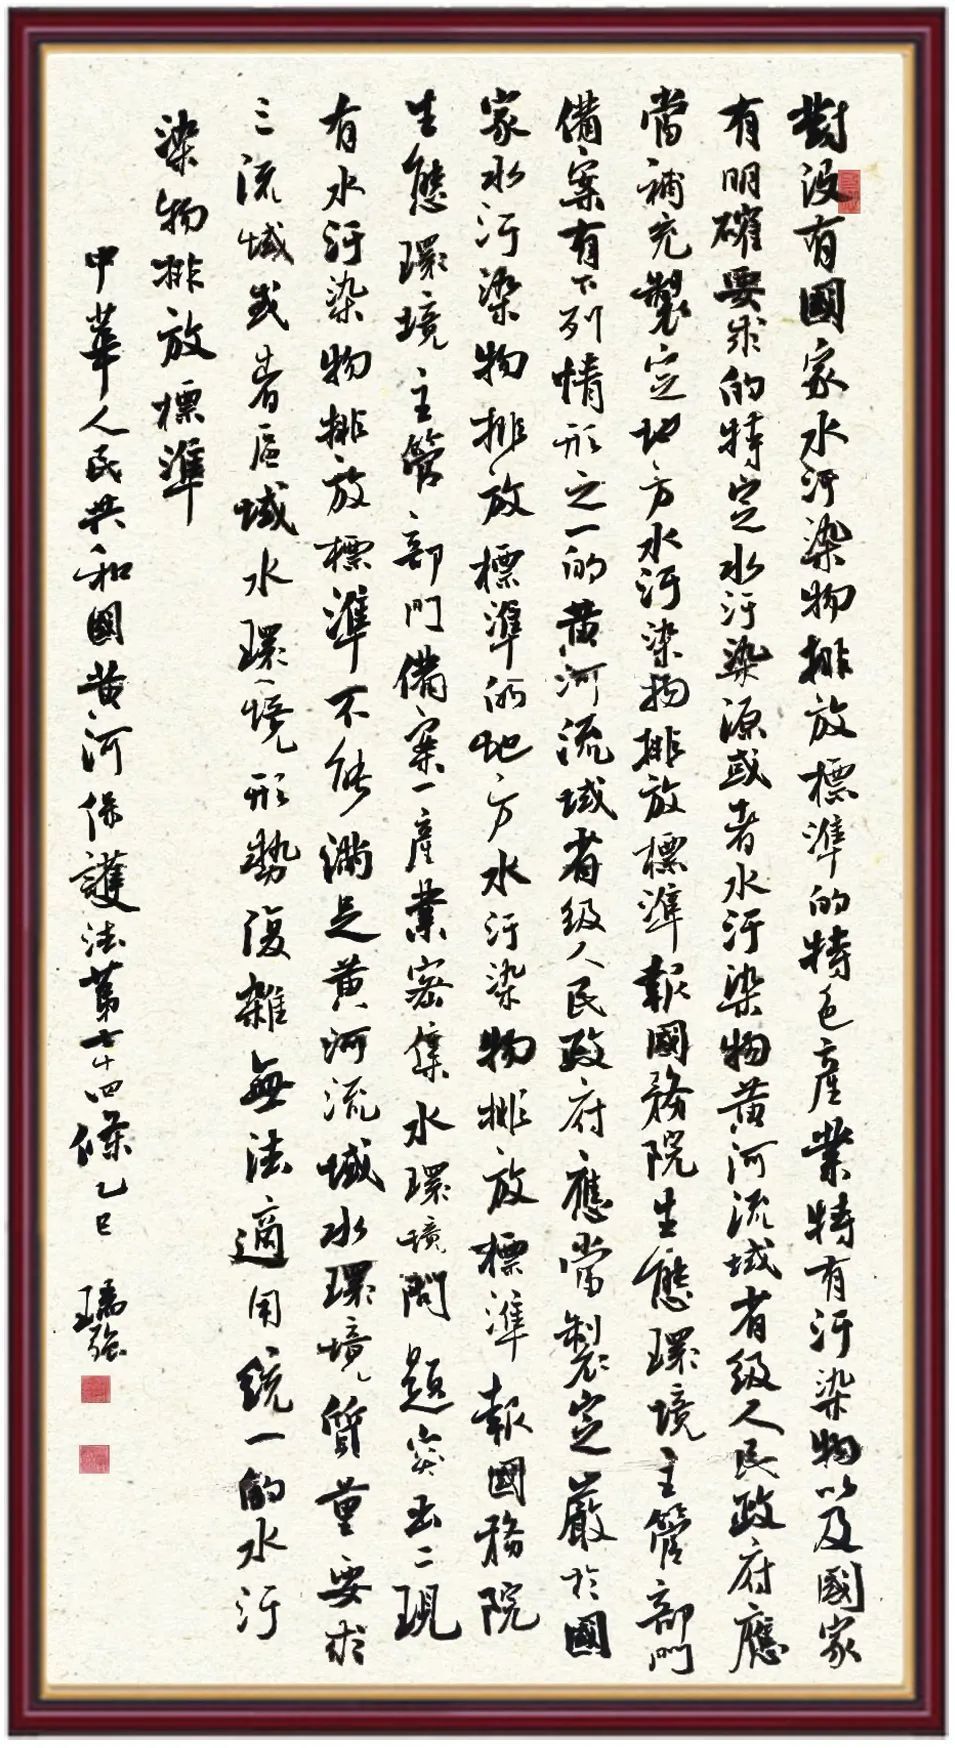 對没有國家水汙染物排放標準的特色產業特有汙染物以及國家
有明確要求的特定水汙染源或者水汙染物黃河流域省級人民政府應
當補充製定地方水汙染物排放標準報國務院生態環境主管部門
備案有下列情形之一的黃河流域省級人民政府應當製定嚴於國
家水汙染物排放標準的地方水汙染物排放標準報國務院
生態環境主管部門備案一產業密集水環境問題突出二現
有水汙染物排放標準不能满足黃河流域水環境質量要求
三流域或者區域水環境形勢復雜無法適用統一的水汙
染物排放標準
中華人民共和國黃河保護法第七十四條乙巳